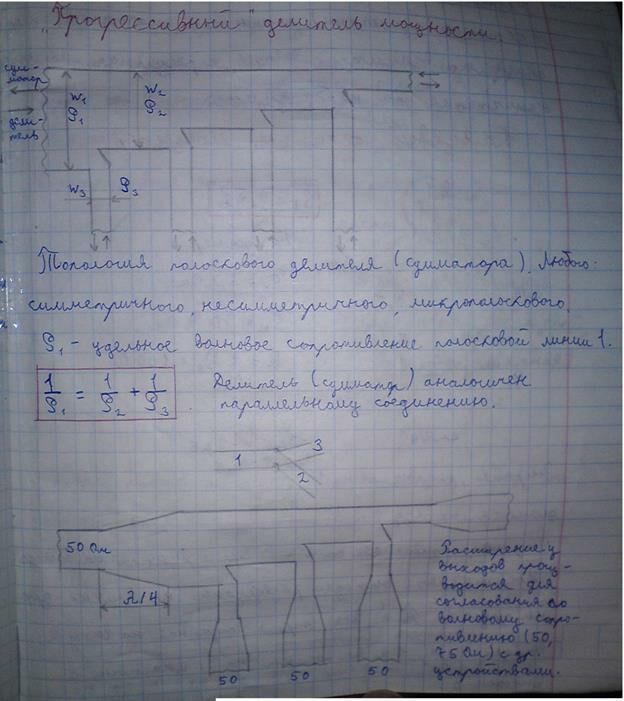 "Прогрессивный" делитель мощности.
сум-
матор
дели-
тель
W₁
ρ₁
W₂
ρ₂
W₃
ρ₃
Топология полоскового делителя (сумматора). Любого:
симметричного, несимметричного, микрополоскового.
ρ₁ - удельное волновое сопротивление полосковой линии 1.
1/ρ₁ = 1/ρ₂ + 1/ρ₃
Делитель (сумматор) аналогичен
параллельному соединению.
1
3
2
50 Ом
λ/4
50
50
50
Расширение у
выходов произ-
водится для
согласования по
волновому сопро-
тивлению (50,
75 Ом) с др.
устройствами.